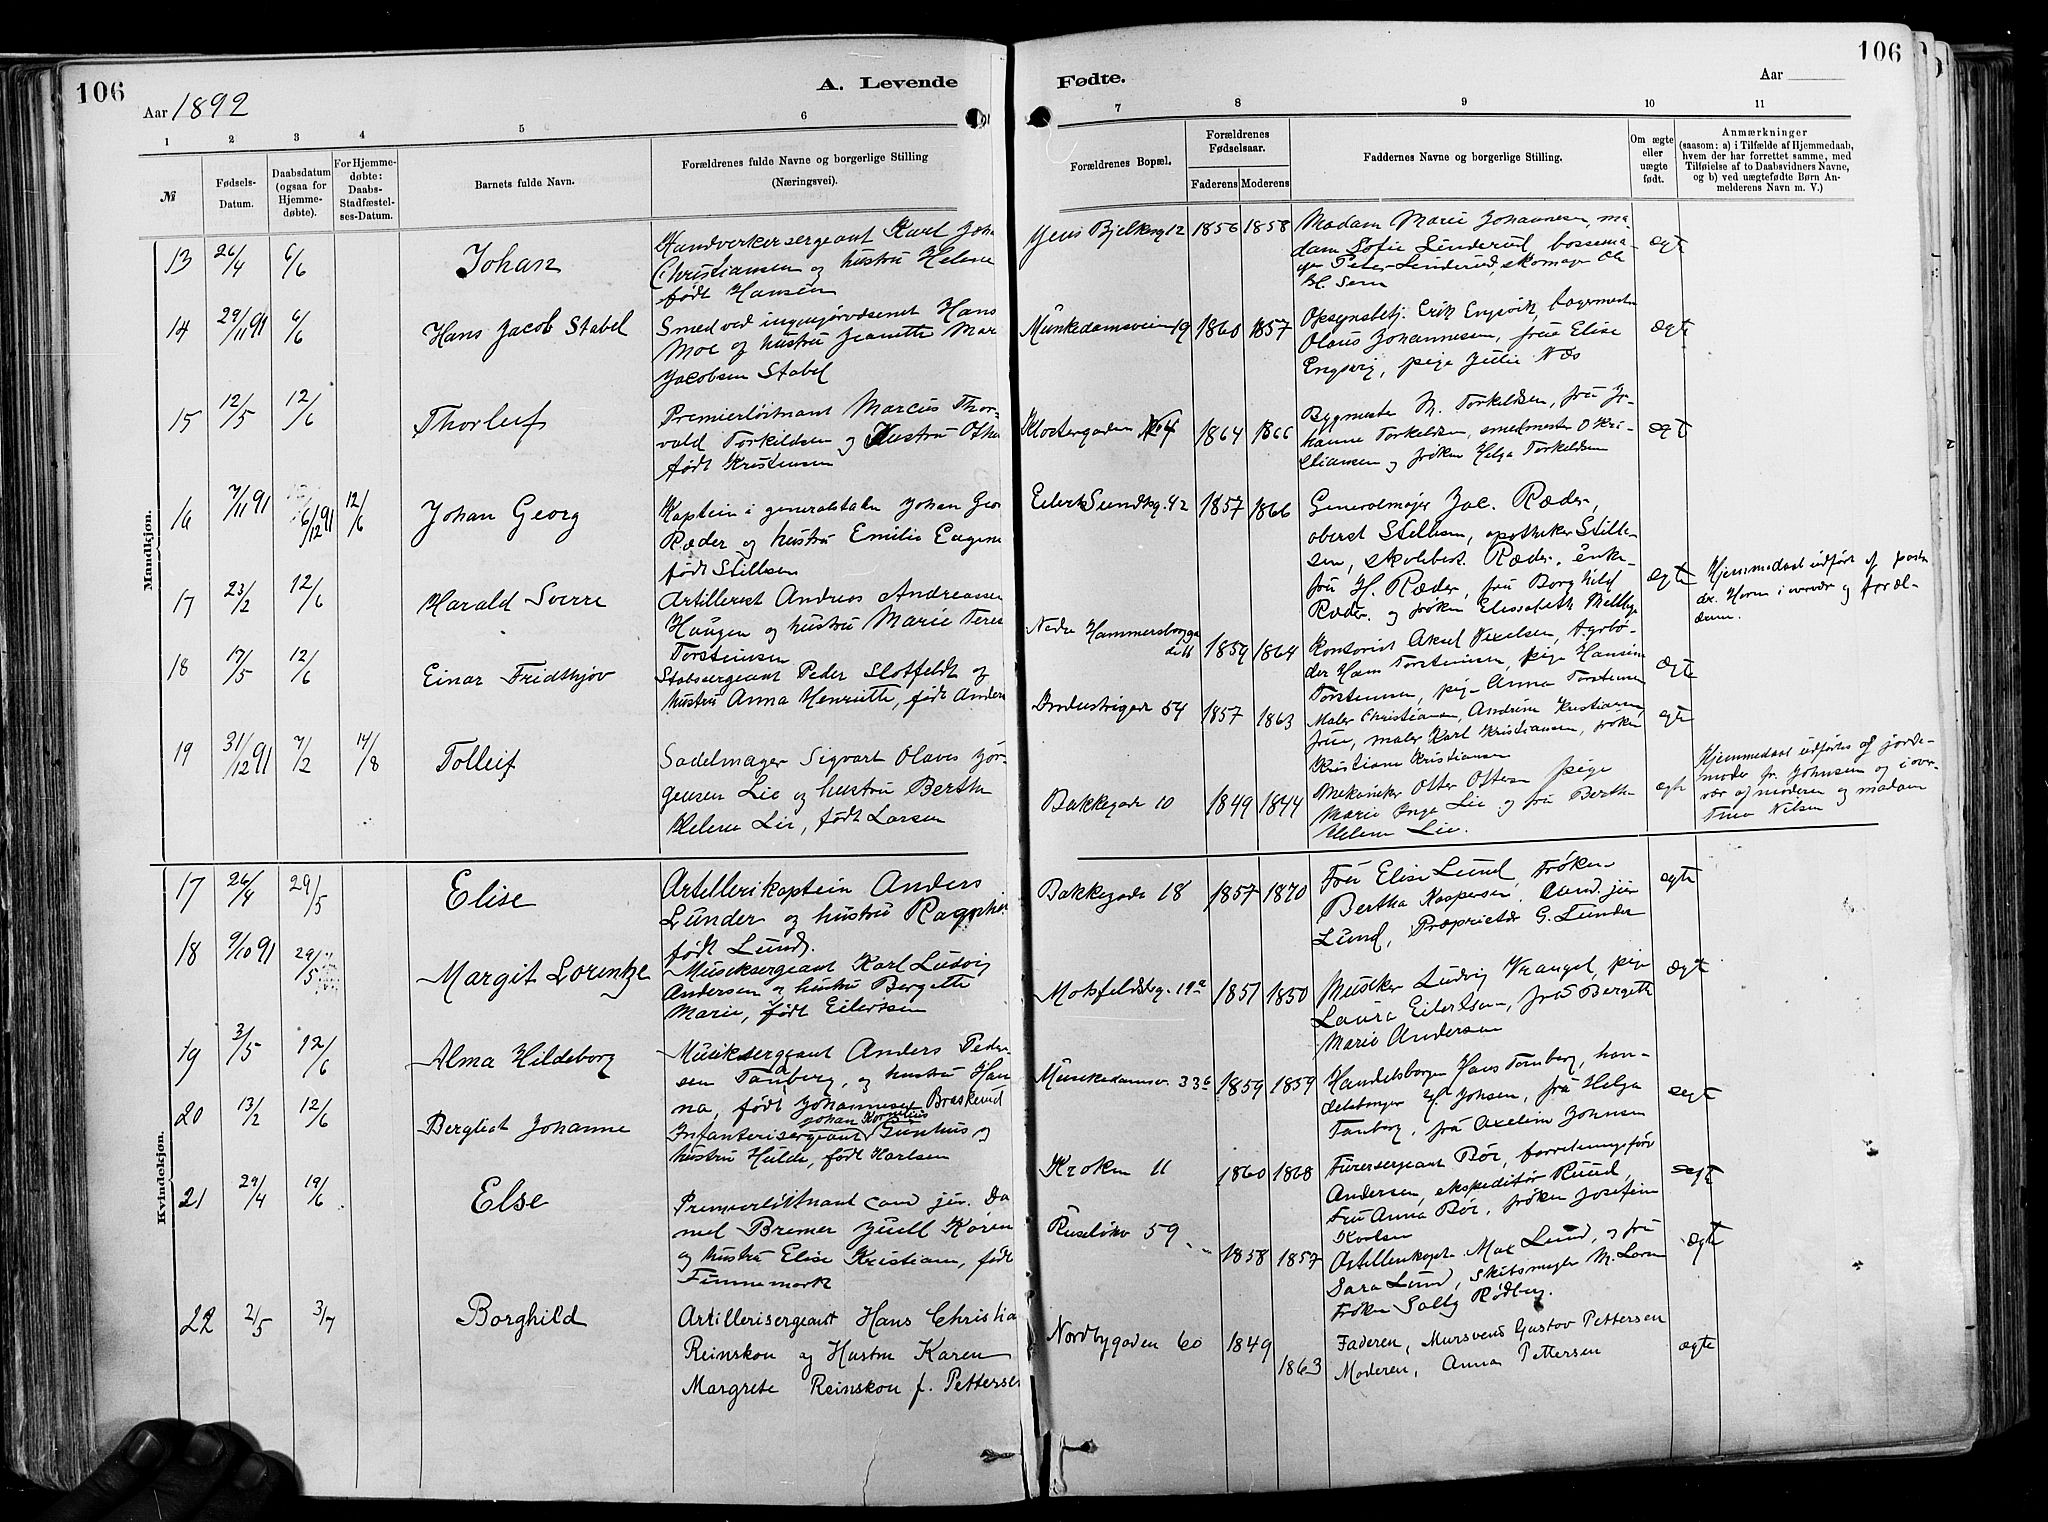 106
A. Levende
Aar 1892
1 2 3 4 5 6
№
Fødsels-Datum.
Daabsdatum (ogsaa for Hjemmedøbte).
For Hjemmedøbte: Daabs-Stadfæstelses-Datum.
Barnets fulde Navn.
Forældrenes fulde Navne og borgerlige Stilling
(Næringsvei).
Mandkjøn.
13 26/4 6/6 Johan
Handverkersergeant Karl Joh
Christiansen og hustru Helene
født Hansen
14 29/11 91 6/6 Hans Jacob Stabel
Smed ved ingeniørvæsenet Hans
Moe og hustru Jeanette Mar
Jacobsen Stabel
15 12/5 12/6 Thorleif
Premierløitnant Marcus Thor-
vald Torkildsen og Hustru Otha
født Kristensen
16 7/11 91 6/12 91 12/6 Johan Georg
Kaptein i generalstaben Johan Geo
Ræder og hustru Emilie Eugene
født Stillsen
17 23/2 12/6 Harald Sverre
Artillerist Andreas Andreasen
Haugen og hustru Marie Teres
Torstensen
18 17/5 12/6 Einar Fridthjov
Stabssergeant Peder Slotfeldt og
hustru Anna Henriette, født Anders
19 31/12 91 7/2 14/8 Tolleif
Sadelmager Sigvart Olaves Jør-
gensen Lie og hustru Bertha
Helene Lie, født Larsen
Kvindekjøn.
17 26/4 29/5 Elise
Artillerikaptein Anders
Lunder og hustru Ragnhi
født Lund.
18 9/10 91 29/5 Margit Lorentze
Musiksergeant Karl Ludvig
Andersen og hustru Bergette
Marie, født Eilertsen
19 3/5 12/6 Alma Hildeborg
Musiksergeant Anders Peder-
sen Tanberg, og hustru Han
na, født Johannesen Braskerud
20 13/2 12/6 Bergliot Johanne
Johan Kornelius
Infanterisergeant Gunhus og
hustru Hulda, født Karlsen
21 29/4 19/6 Else
Premierløitnant cand jur. Da
niel Bremer Juell Koren
og hustru Elise Kristiane, født
Finnemark
22 2/5 3/7 Borghild
Artillerisergeant Hans Christia
Reinskou og Hustru Karen
Margrete Reinskou f. Petterse
106
Fødte.
Aar
7 8 9 10 11
Forældrenes Bopæl.
Forældrenes Fødselsaar.
Faderens Moderens
Faddernes Navne og borgerlige Stilling.
Om ægte eller uægte født.
Anmærkninger
(saasom: a) i Tilfælde af Hjemmedaab,
hvem der har forrettet samme, med
Tilføielse af to Daabsvidners Navne,
og b) ved uægtefødte Børn An-
melderens Navn m. V.)
Jens Bjelkesg 12 1856 1858 ægte
Madam Marie Johannesen, ma-
dam Sofie Linderud, bøssema-
ger Peter Linderud, skomager Ole
Munkedamsveien 19 1860 1857 ægte
Opsynsbetj. Erik Engsvik, bagermester
Olaus Johannessen, frue Elise
Engsvig, pige Julie Næs
Klostergaden 64 1864 1866 ægte
Bygmester M. Torkeldsen, fru Jo-
hanne Torkeldsen, smedmester O Kri-
stiansen og frøken Helga Torkeldsen
Eilert Sundtsg. 42 1857 1866 ægte
Generalmajor Jac. Ræder,
oberst Stillsen, apotheker Still-
sen, skolebest. Ræder. enke-
fru H. Ræder, fru Borghild
Ræder. og frøken Elisabeth
Hjemmedaab udført af pastor
Horn i overvær og foræl-
drene.
Nedre Hammersborggade 11 1859 1864 ægte
Kontorist Aksel Nielsen,
der Hans Torstensen, pige Hansine
Torstensen, pige Anna Torstensen
Industrigade 54 1857 1863 ægte
Maler Christiansen, Andrine Kristiansen,
frue, maler Karl Kristiansen, frøken
Kristiane Kristiansen
Bakkegade 10 1849 1844 ægte
Mekaniker Otter Ottersen pige
Marie Inge Lie og fru Bertha
Helene Lie.
Hjemmedaab udførtes af jorde-
moder fr. Johnsen og i over-
vær af moderen og madam
Tina Nilsen
Bakkegade 18 1857 1870 ægte
Fru Elise Lund, Frøken
Bertha Kaspersen, Cand. jur
Lund, Proprietær G. Lunder
Mosfeldtsg. 19a 1851 1850 ægte
Musiker Ludvig Vrangel, pige
Laura Eilertsen, fru Bergette
Marie Andersen
Munkedamsv. 33b 1859 1859 ægte
Handelsborger Hans Tanberg, han-
delsborger Johsen, fru Helga
Tanberg, fru Axeline Johnsen
Kroken 11 1860 1868 ægte
Furersergeant Bør, forretningsfører
Andersen, ekspeditør Ruud,
Fru Anna Bør, frøken Josefine
Karlsen
Ruseløkv 59 1858 1857 ægte
Artillerikapt. Max Lund, og fru
Sara Lund, Skibsmægler M. Lorn
Frøken Sally Rødberg.
Nordbygaden 60 1849 1863 ægte
Faderen, Mursvend Gustav Pettersen
Moderen, Anna Pettersen